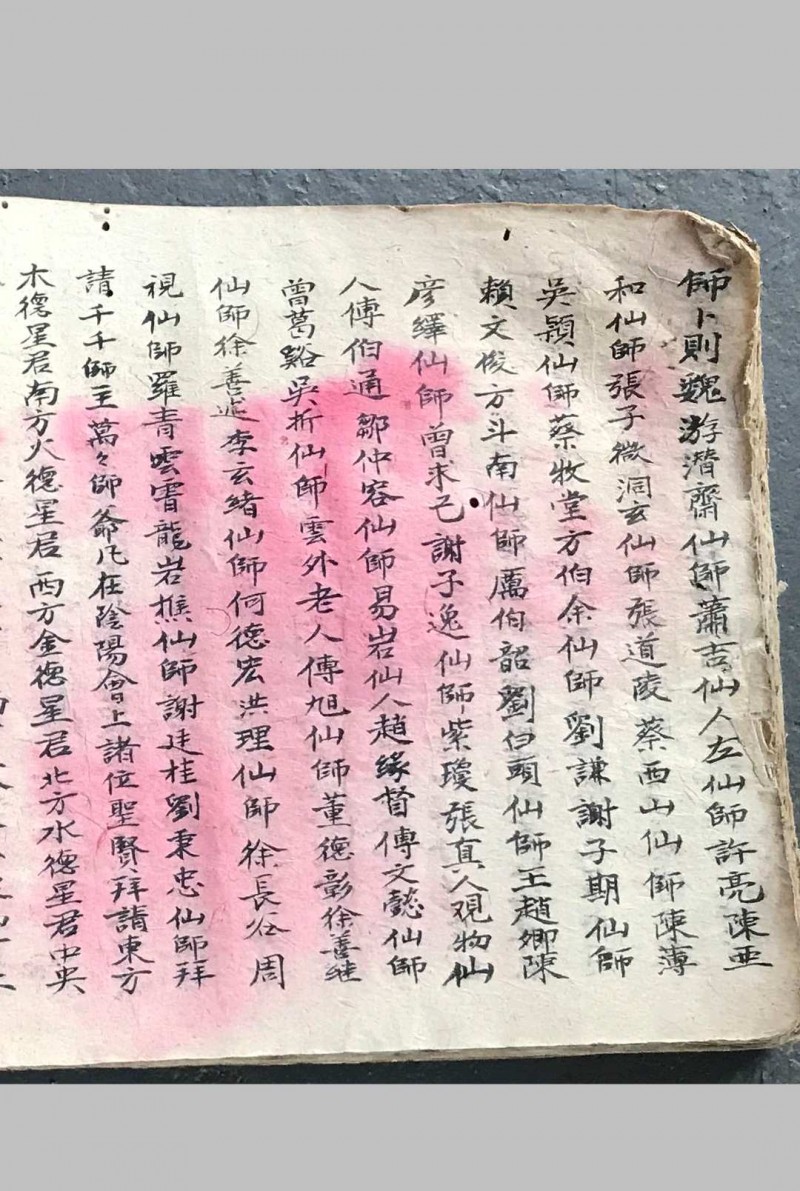 師卜則魏游潛齋仙師蕭吉仙人左仙師許亮陳亞
和仙師張子微洞玄仙師張道陵蔡西山仙師陳薄
吳穎仙師蔡牧堂方伯余仙師劉謙謝子期仙師
賴文俊方斗南仙師厲伯韶劉白頭仙師王趙卿陳
彦繹仙師曾求己謝子逸仙師紫瓊張真人观物仙
人傅伯通鄒仲容仙師易岩仙人趙緣督傅文懿仙師
曾葛谿吳折仙師雲外老人傅旭仙師董德彰徐善继
仙師徐善述李玄緒仙師何德宏洪理仙師徐長谷周
視仙師羅青雲霄龍岩樵仙師謝廷桂劉秉忠仙師拜
請千千師主萬々師爺凡在陰陽會上諸位聖賢拜請東方
木德星君南方火德星君西方金德星君北方水德星君中央